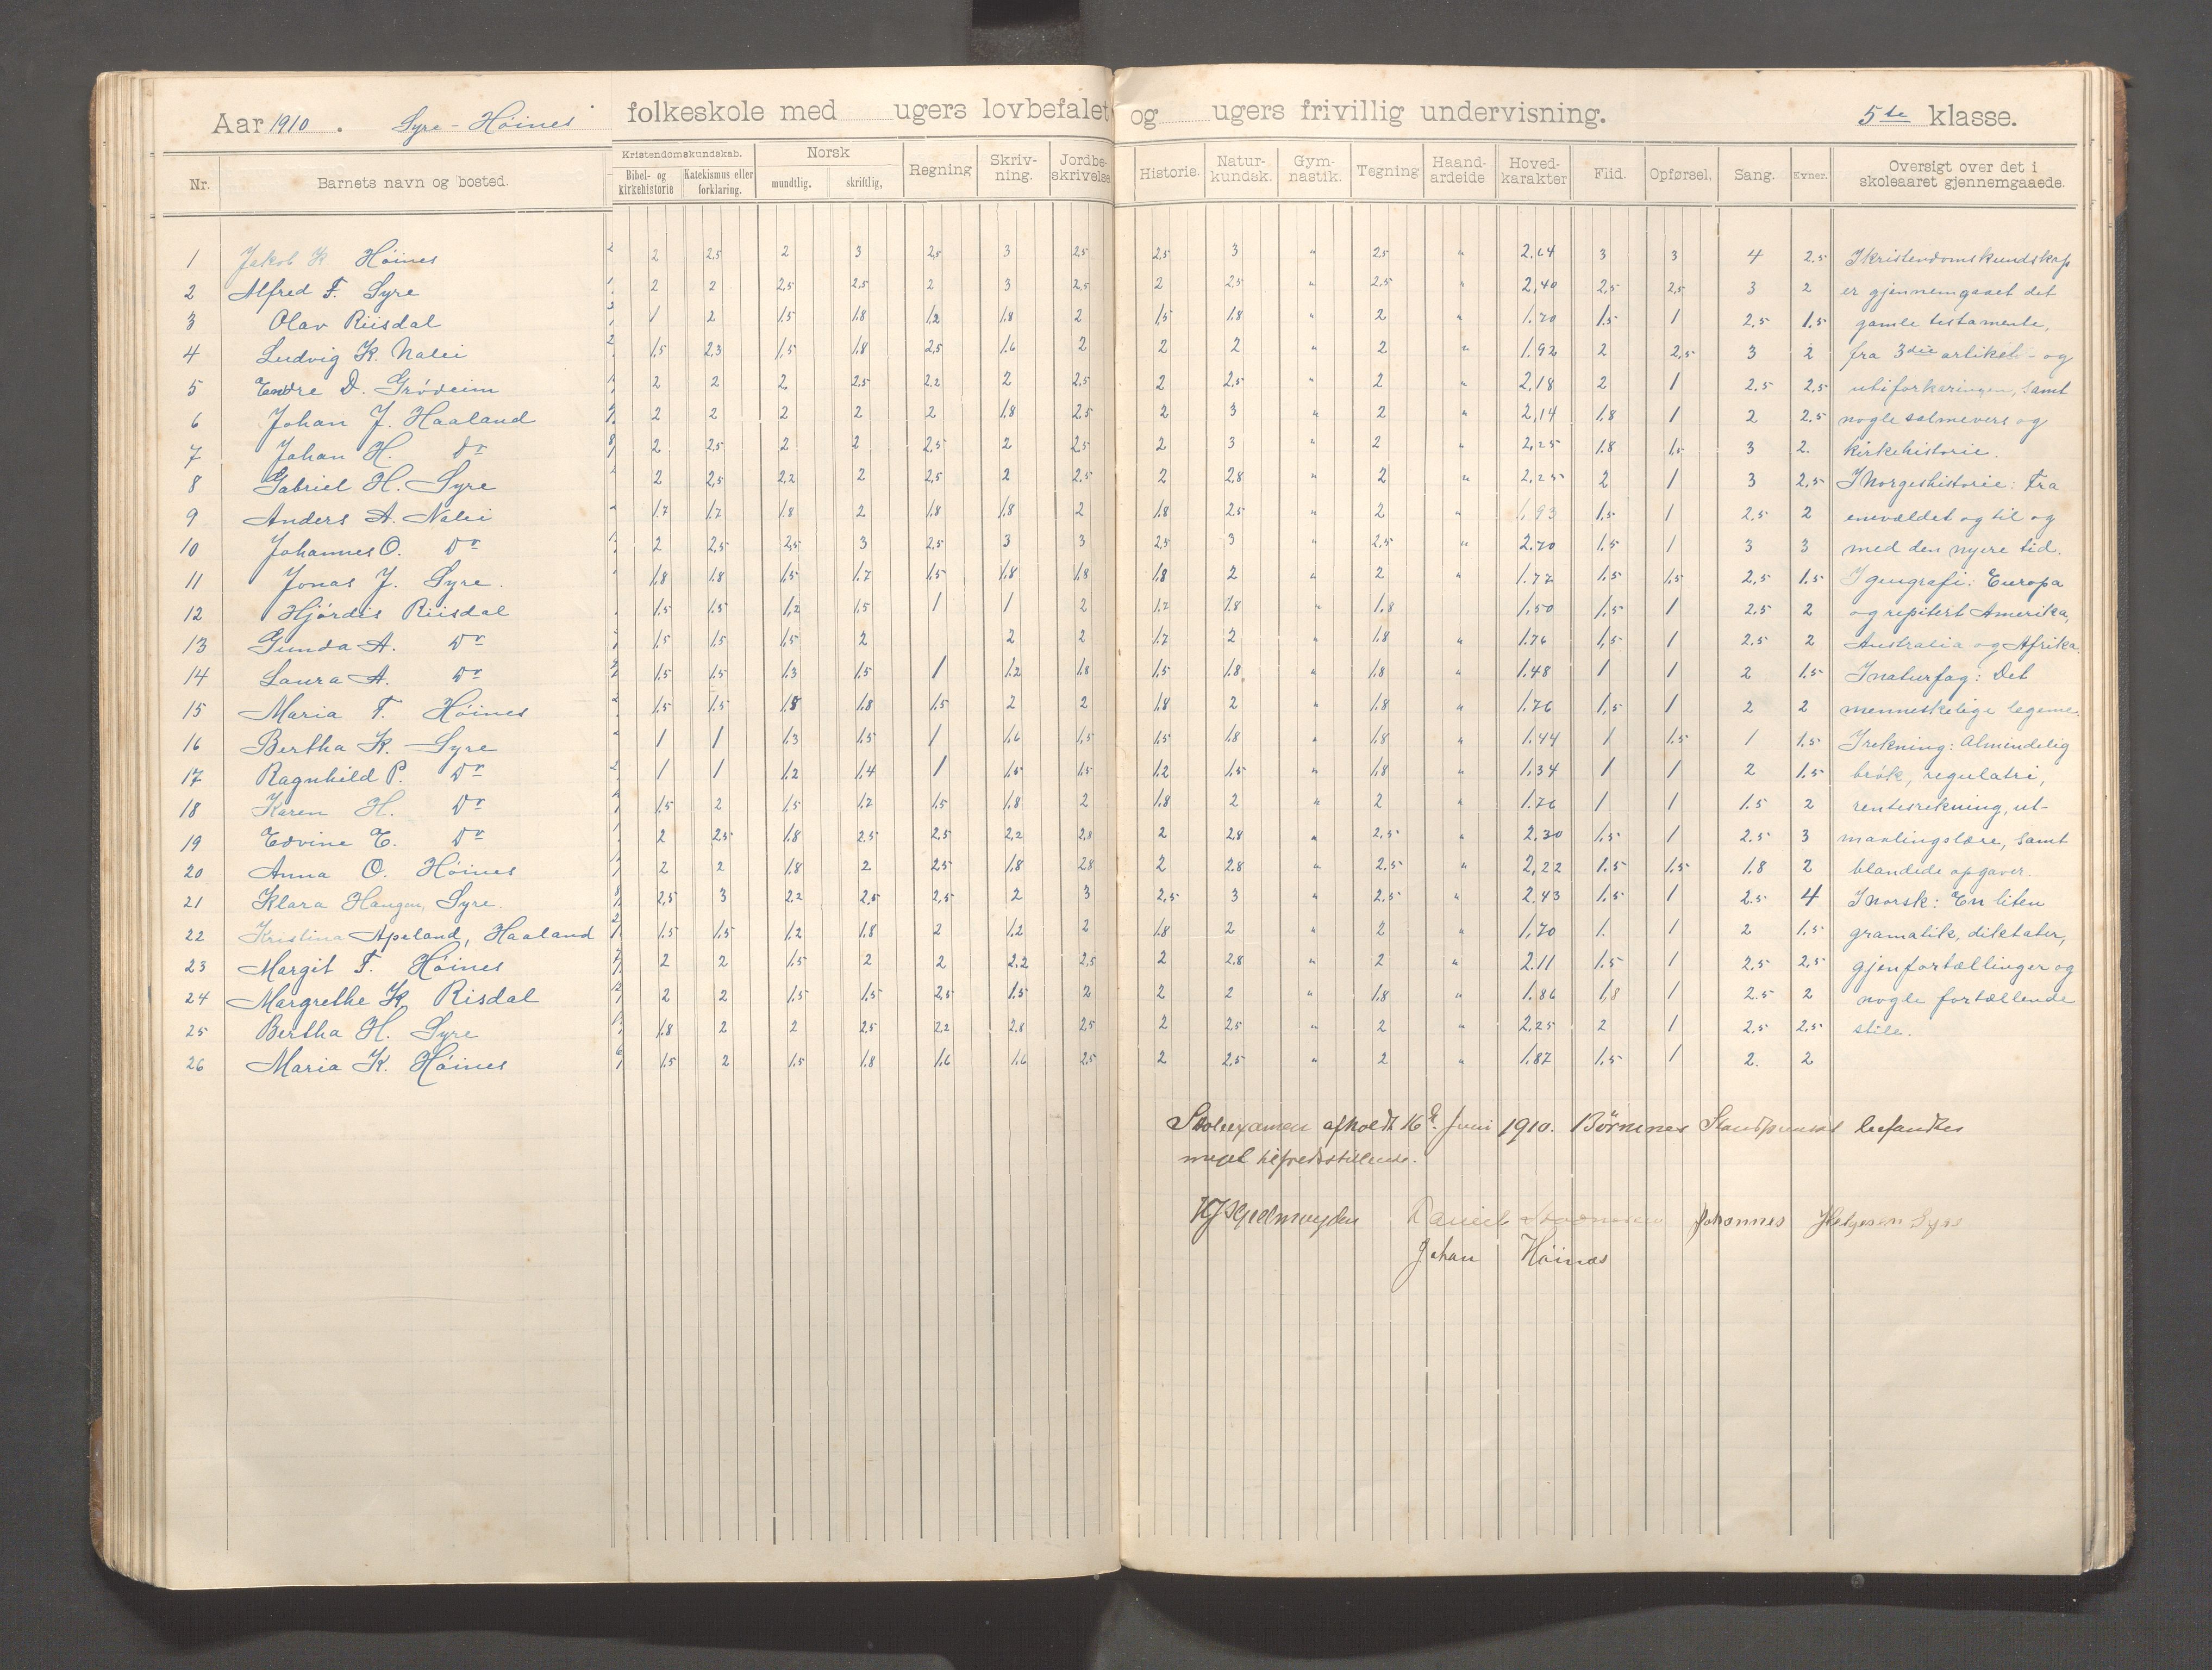 Aar 1910. Syre-Höines folkeskole med ugers lovbefalet og ugers frivillig undervisning. 5te klasse.
Nr. Barnets navn og bosted. Kristendomskundskab. Bibel- og kirkehistorie Katekismus eller forklaring. Norsk mundtlig. skriftlig, Regning Skriv-ning. Jordbe-skrivelse Historie. Natur-kundsk. Gym-nastik. Tegning Haand-arbeide Hoved-karakter Flid. Opførsel. Sang. Evner. Oversigt over det i skoleaaret gjennemgaaede.
1 Jakob K Höines 2 2,5 2 3 2,5 3 2,5 2,5 3 " 2,5 " 2.64 3 3 4 2.5 I kristendomskundskap
2 Alfred F. Syre 2 2 2,5 2,5 2 3 2,5 2 2,5 " 2,5 " 2,40 2,5 2,5 3 2 er gjennemgaaet det
3 Olav Riisdal 1 2 1,5 1,8 1,2 1,8 2 1,5 1,8 " 2 " 1.70 1.5 1 2,5 1.5 gamle testamente,
4 Ludvig K. Nalei 1,5 2,3 1,5 1,8 2,5 1,6 2 2 2 " 2 " 1.92 2 2,5 3 2 fra 3die artikel - og
5 Endre D. Grödeim 2 2 2 2,5 2,2 2 2,5 2 2,5 " 2 " 2,18 2 1 2.5 2,5 samt
6 Johan J. Haaland 2 2 2 2 2 1,8 2,5 2 3 " 2 " 2,14 1.8 1 2 2.5 nogle salmevers og
7 Johan H. Do 2 2,5 2 2 2,5 2 2,5 2 3 " 2 " 2,25 1.8 1,5 3 2. kirkehistorie.
8 Gabriel H. Syre 2 2,5 2,2 2 2,5 2 2,5 2 2,8 " 2 " 2,25 2 1 3 2,5 I Norgeshistorie: Fra
9 Anders A. Nalei 1,7 1,7 1,8 2 1,8 1,8 2 1,8 2,5 " 2 " 1,93 1,5 1 2,5 2 enevældet og til og
10 Johannes O. Do 2 2,5 2,5 3 2,5 3 3 2,5 3 " 2,5 " 2.70 1.5 1 3 3 med den nyere tid.
11 Jonas J. Syre. 1,8 1,8 1,5 1,7 1,5 1,8 1,8 1,8 2 " 2 " 1.72 1.5 1,5 2,5 1.5 I geografi: Europa
12 Hjördis Riisdal 1,5 1,5 1,2 1,5 1 1 2 1,7 1,8 " 1,8 1,50 1.5 1 2.5 2 og repitert Amerika,
13 Gunda A. Do 1,5 1,5 1,5 2 2 2 1,7 2 " 1,8 " 1.76 1,5 1 2.5 2 Australia og Afrika.
14 Laura A. Do 1,5 1,5 1,3 1,5 1 1,2 1,8 1,5 1,8 " 1,8 " 1.48 1 1 2 1.5 I naturfag: Det
15 Maria T. Höines 1,5 1,5 1,8 1,8 1,5 2 2 1,8 2 " 1,8 " 1.76 1,5 1 2 2 menneskelige legeme.
16 Bertha K. Syre 1 1 1,3 1,5 1 1,6 1,5 1,5 1,8 " 1,8 " 1.44 1 1.5 1 1.5 I rekning: Almindelig
17 Ragnhild P. Do 1 1 1,2 1,4 1 1,5 1,5 1,2 1,5 " 1,8 " 1,34 1 1 2 1.5 brök, regulatri,
18 Karen H. Do 1,5 2 1,5 1,7 1,5 1,8 2 1,8 2 " 2 " 1.76 1 1 1.5 2 rentesrekning, ut-
19 Edvine E. Do 2 2,5 1,8 2,5 2,5 2,2 2,8 2 2,8 " 2,5 " 2.30 1.5 1 2.5 3 maalingslære, samt
20 Anna O. Höines 2 2 1,8 2 2,5 1,8 2,8 2 2,8 " 2.5 " 2,22 1.5 1,5 1.8 2 blandede opgaver.
21 Klara Haugen, Syre. 2,5 3 2,2 2,5 2,5 2 3 2,5 3 " 2.5 " 2.43 1.5 1 2.5 4 I norsk: En liten
22 Kristina Apeland, Haaland 1,5 1,5 1,2 1,8 2 1,2 2 1,8 2 " 2 " 1,70 1. 1 2 1.5 gramatik, diktater,
23 Margit T. Höines 2 2 1,5 2 2 2,2 2,5 2 2,8 " 2 " 2.11 1.5 1 2.5 2,5 gjenfortællinger og
24 Margrethe K. Risdal 2 2 1,5 1,5 2,5 1,5 2 2 2 " 1,8 " 1.86 1,8 1 2.5 2 nogle fortællende
25 Bertha H. Syre 1,8 2 2 2,5 2,2 2,8 2,5 2 2,5 " 2 " 2.25 2 1 2,5 2,5 stile.
26 Maria K. Höines 1,5 2 1,5 1,8 1,6 1,6 2,5 2 2,5 " 2 " 1,87 1,5 1 2. 2
Skoleexamen afholdt 16de Juni 1910. Börnenes Standpunkt befandtes
meget tilfredsstillende.
Daniel Johannes Helgesen Syre
Johan Höines